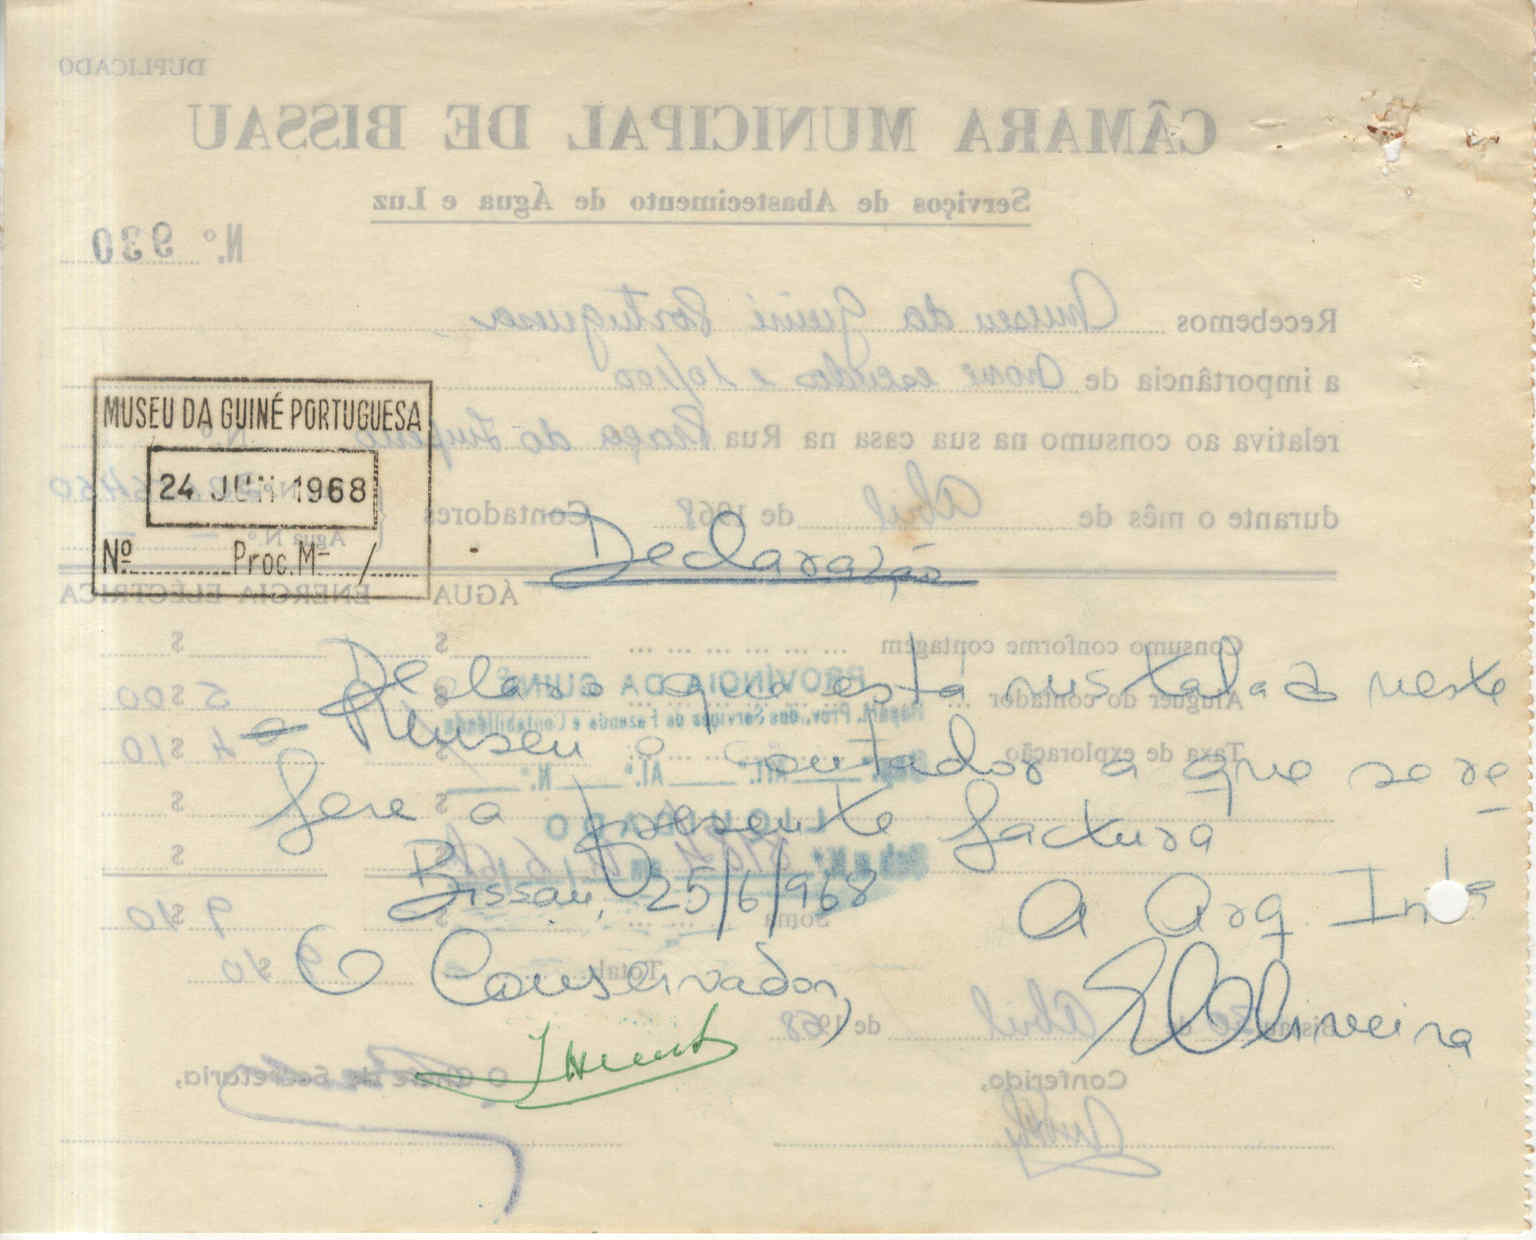 MUSEU DA GUINÉ PORTUGUESA
24 JUN 1968
Nº Proc. Mº /
Declaração
Declaro que está instalado neste
Museu o contador a que se re
fere a presente factura
Bissau, 25/6/968
O Conservador,
A Arq. Intª
Oliveira
DUPLICADO
CÂMARA MUNICIPAL DE BISSAU
Serviços de Abastecimento de Água e Luz
N.º 930
Recebemos Museu da Guiné Portuguesa
a importância de nove escudos e 10/100
relativa ao consumo na sua casa na Rua Praça do Império Nº
durante o mês de Abril de 1968 Contadores
Água Nº
ÁGUA ENERGIA ELÉCTRICA
Consumo conforme contagem $ $
Aluguer do contador 5$00
Taxa de exploração 4$10
PROVÍNCIA DA GUINÉ
Repart. Prov. dos Serviços de Fazenda e Contabilidade
LIQUIDADO
Soma 9$10
Total 9$10
Bissau, de Abril de 1968
Conferido,
O Chefe de Secretaria,